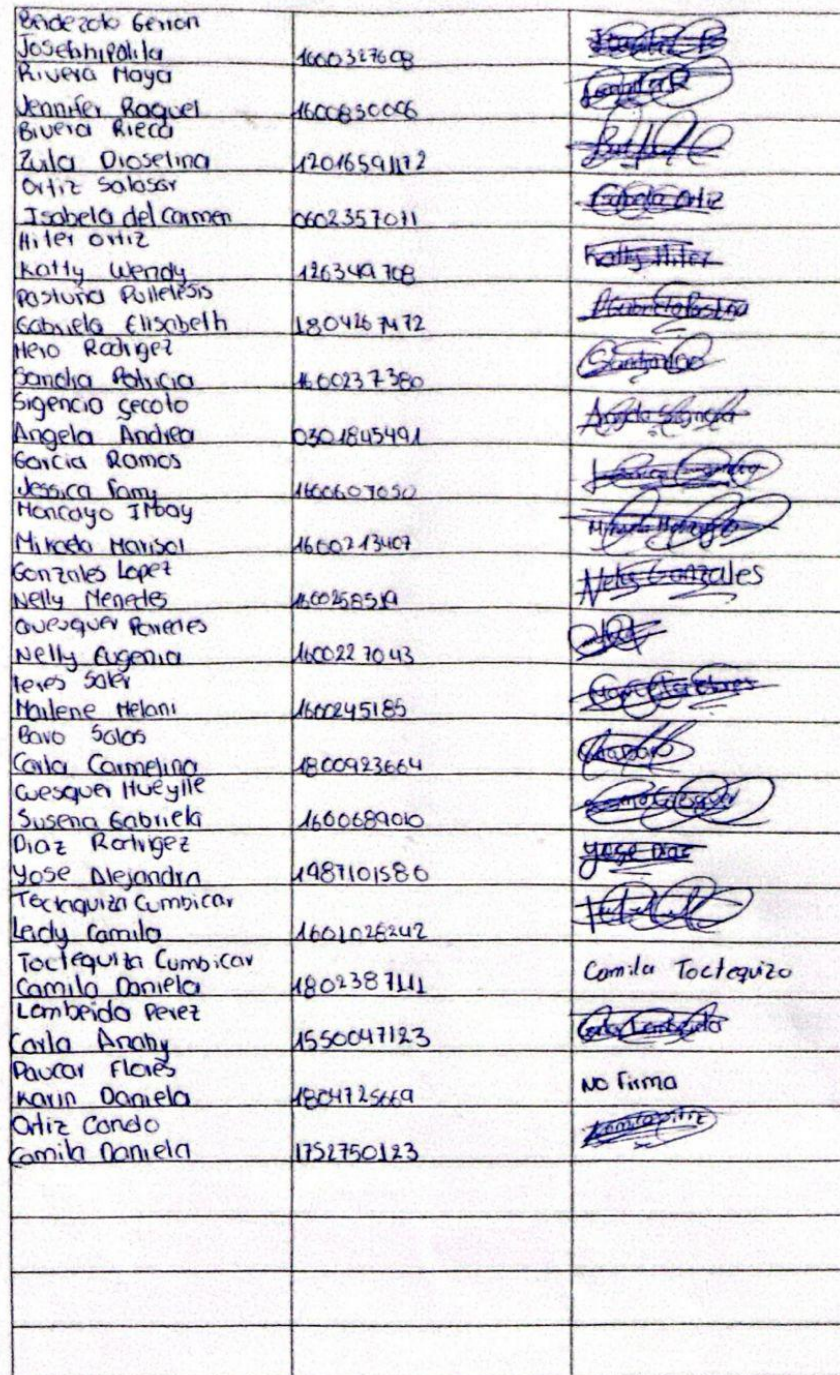 Berdezoto Gerion
Josehhipolila 1600327608
Rivera Moya
Jennifer Raquel 1600850006
Bivera Rieca
Zula Dioselina 1201659172
Ortiz Salasar
Isabela del Carmen 0602357011 Isabela Ortiz
Hiter Ortiz
Katty Wendy 126349708 Katty Hiter
Pastuña
Gabriela Elisabeth 1804267472
Hero Rodrigez
Sandra Patricia 1600237380
Sigencio Secoto
Angela Andrea 0301845491
Garcia Ramos
Jessica Famy 1600607050
Moncayo Imbay
Mikaela Marisol 1600213407
Gonzales Lopez
Nelly Menedes 1600258519 Nely Gonzales
Quesquer Paredes
Nelly Eugenia 1600227043
Teres Soler
Marlene Melani 1600245185
Bavo Salas
Carla Carmelina 1800923664
Guesquer Hueylle
Susena Gabriela 1600689010
Diaz Rodrigez
Yose Alejandra 1987101580 Yose Dias
Tectaquiza Cumbicar
Leidy Camila 1601026242
Toctequiza Cumbicar
Camila Daniela 1802387111 Camila Toctequizo
Lombeida Perez
Carla Anahy 1550047123
Paucar Flores
Karin Daniela 1804725669 No Firma
Ortiz Condo
Camila Daniela 1752750123